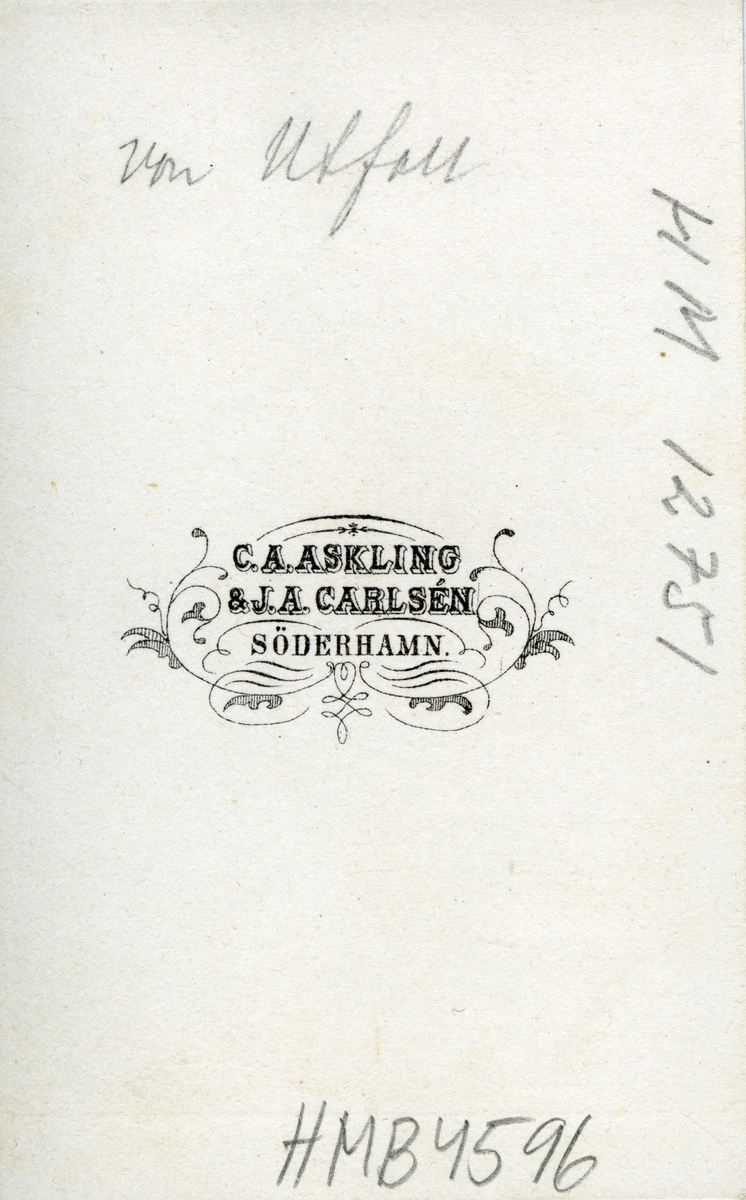 von Utfall
HM 12751
C.A. ASKLING
& J.A. CARLSÉN
SÖDERHAMN.
HMB4596